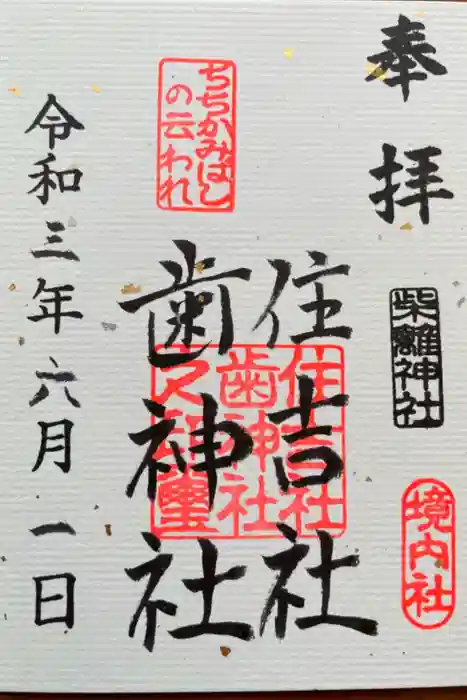 奉拝
柴離神社
境内社
住吉社
歯神社
住吉社
歯神社
之印璽
ちちかみはし
の云われ
令和三年六月一日